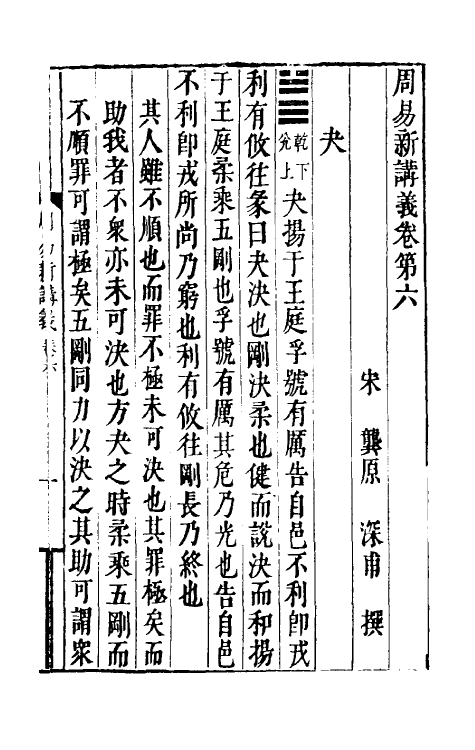 周易新講義卷第六
宋 龔原 深甫 撰
夬
乾下兌上夬揚于王庭孚號有厲告自邑不利卽戎
利有攸往彖曰夬決也剛決柔也健而說決而和揚
于王庭柔乘五剛也孚號有厲其危乃光也告自邑
不利卽戎所尚乃窮也利有攸往剛長乃終也
其人雖不順也而罪不極未可決也其罪極矣而
助我者不衆亦未可決也方夬之時柔乘五剛而
不順罪可謂極矣五剛同力以決之其助可謂衆